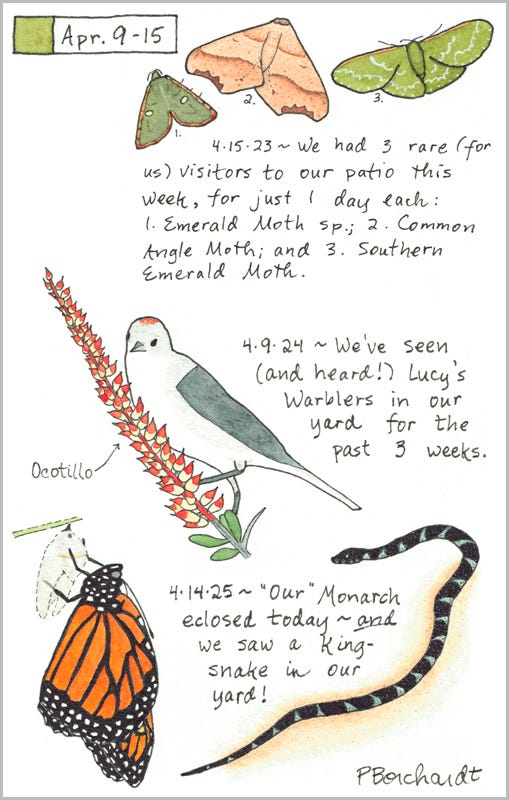 Apr. 9-15
1.
2.
3.
4.15.23 ~ We had 3 rare (for
us) visitors to our patio this
week, for just 1 day each:
1. Emerald Moth sp.; 2. Common
Angle Moth; and 3. Southern
Emerald Moth.
4.9.24 ~ We've seen
(and heard!) Lucy's
Warblers in our
yard for the
past 3 weeks.
Ocotillo
4.14.25 ~ "Our" Monarch
eclosed today ~ and
we saw a King-
snake in our
yard!
PBorchardt